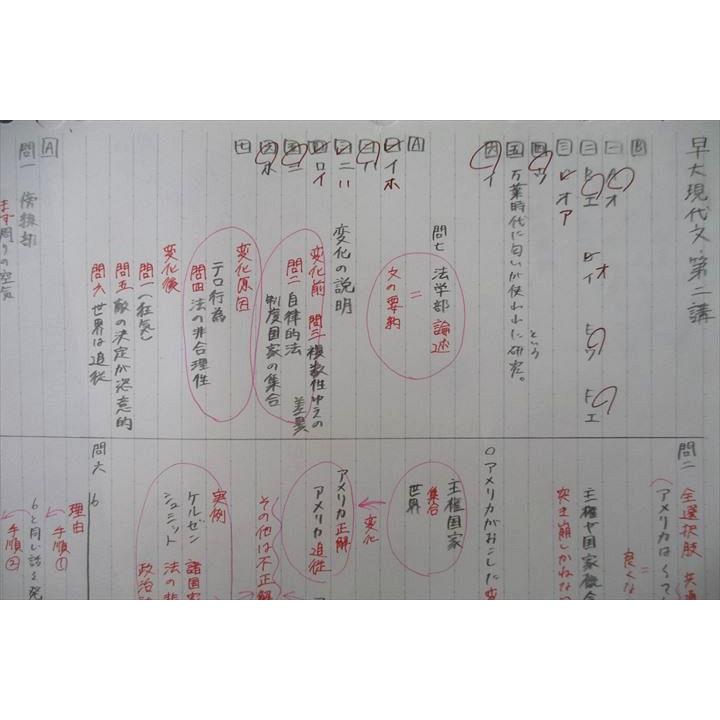 早大現代文・第二講
B
一 オ
イ オ
ウ
エ
二 エ
三 オ ア
四 ウ
五 万葉時代に匂いが使われたという研究。
六 イ
A
一 イ ホ
二 ハ
三 ニ ハ
四 ロ イ
五 ニ
六 ホ
七
問七 法学部 論述
=
文の要約
変化の説明
変化前 問三 複数性ゆえの差異
問二 自律的法
制度国家の集合
変化原因
テロ行為
問四 法の非合理性
変化後
問一 〈狂気〉
問五 敵の決定が恣意的
問六 世界は追従
A
問一 傍線部
まず周りの空気
問二 全選択肢 共通
(アメリカはくて
=
良くな
主権や国家概念
突き崩しかねな
○アメリカがおこした変
主権国家
集合
世界
変化
アメリカ正解
アメリカ追従
その他は不正解
実例
ケルゼン 諸国家
シュミット 法の非
政治
問六 6
理由
手順①
6と同い話を発
手順②